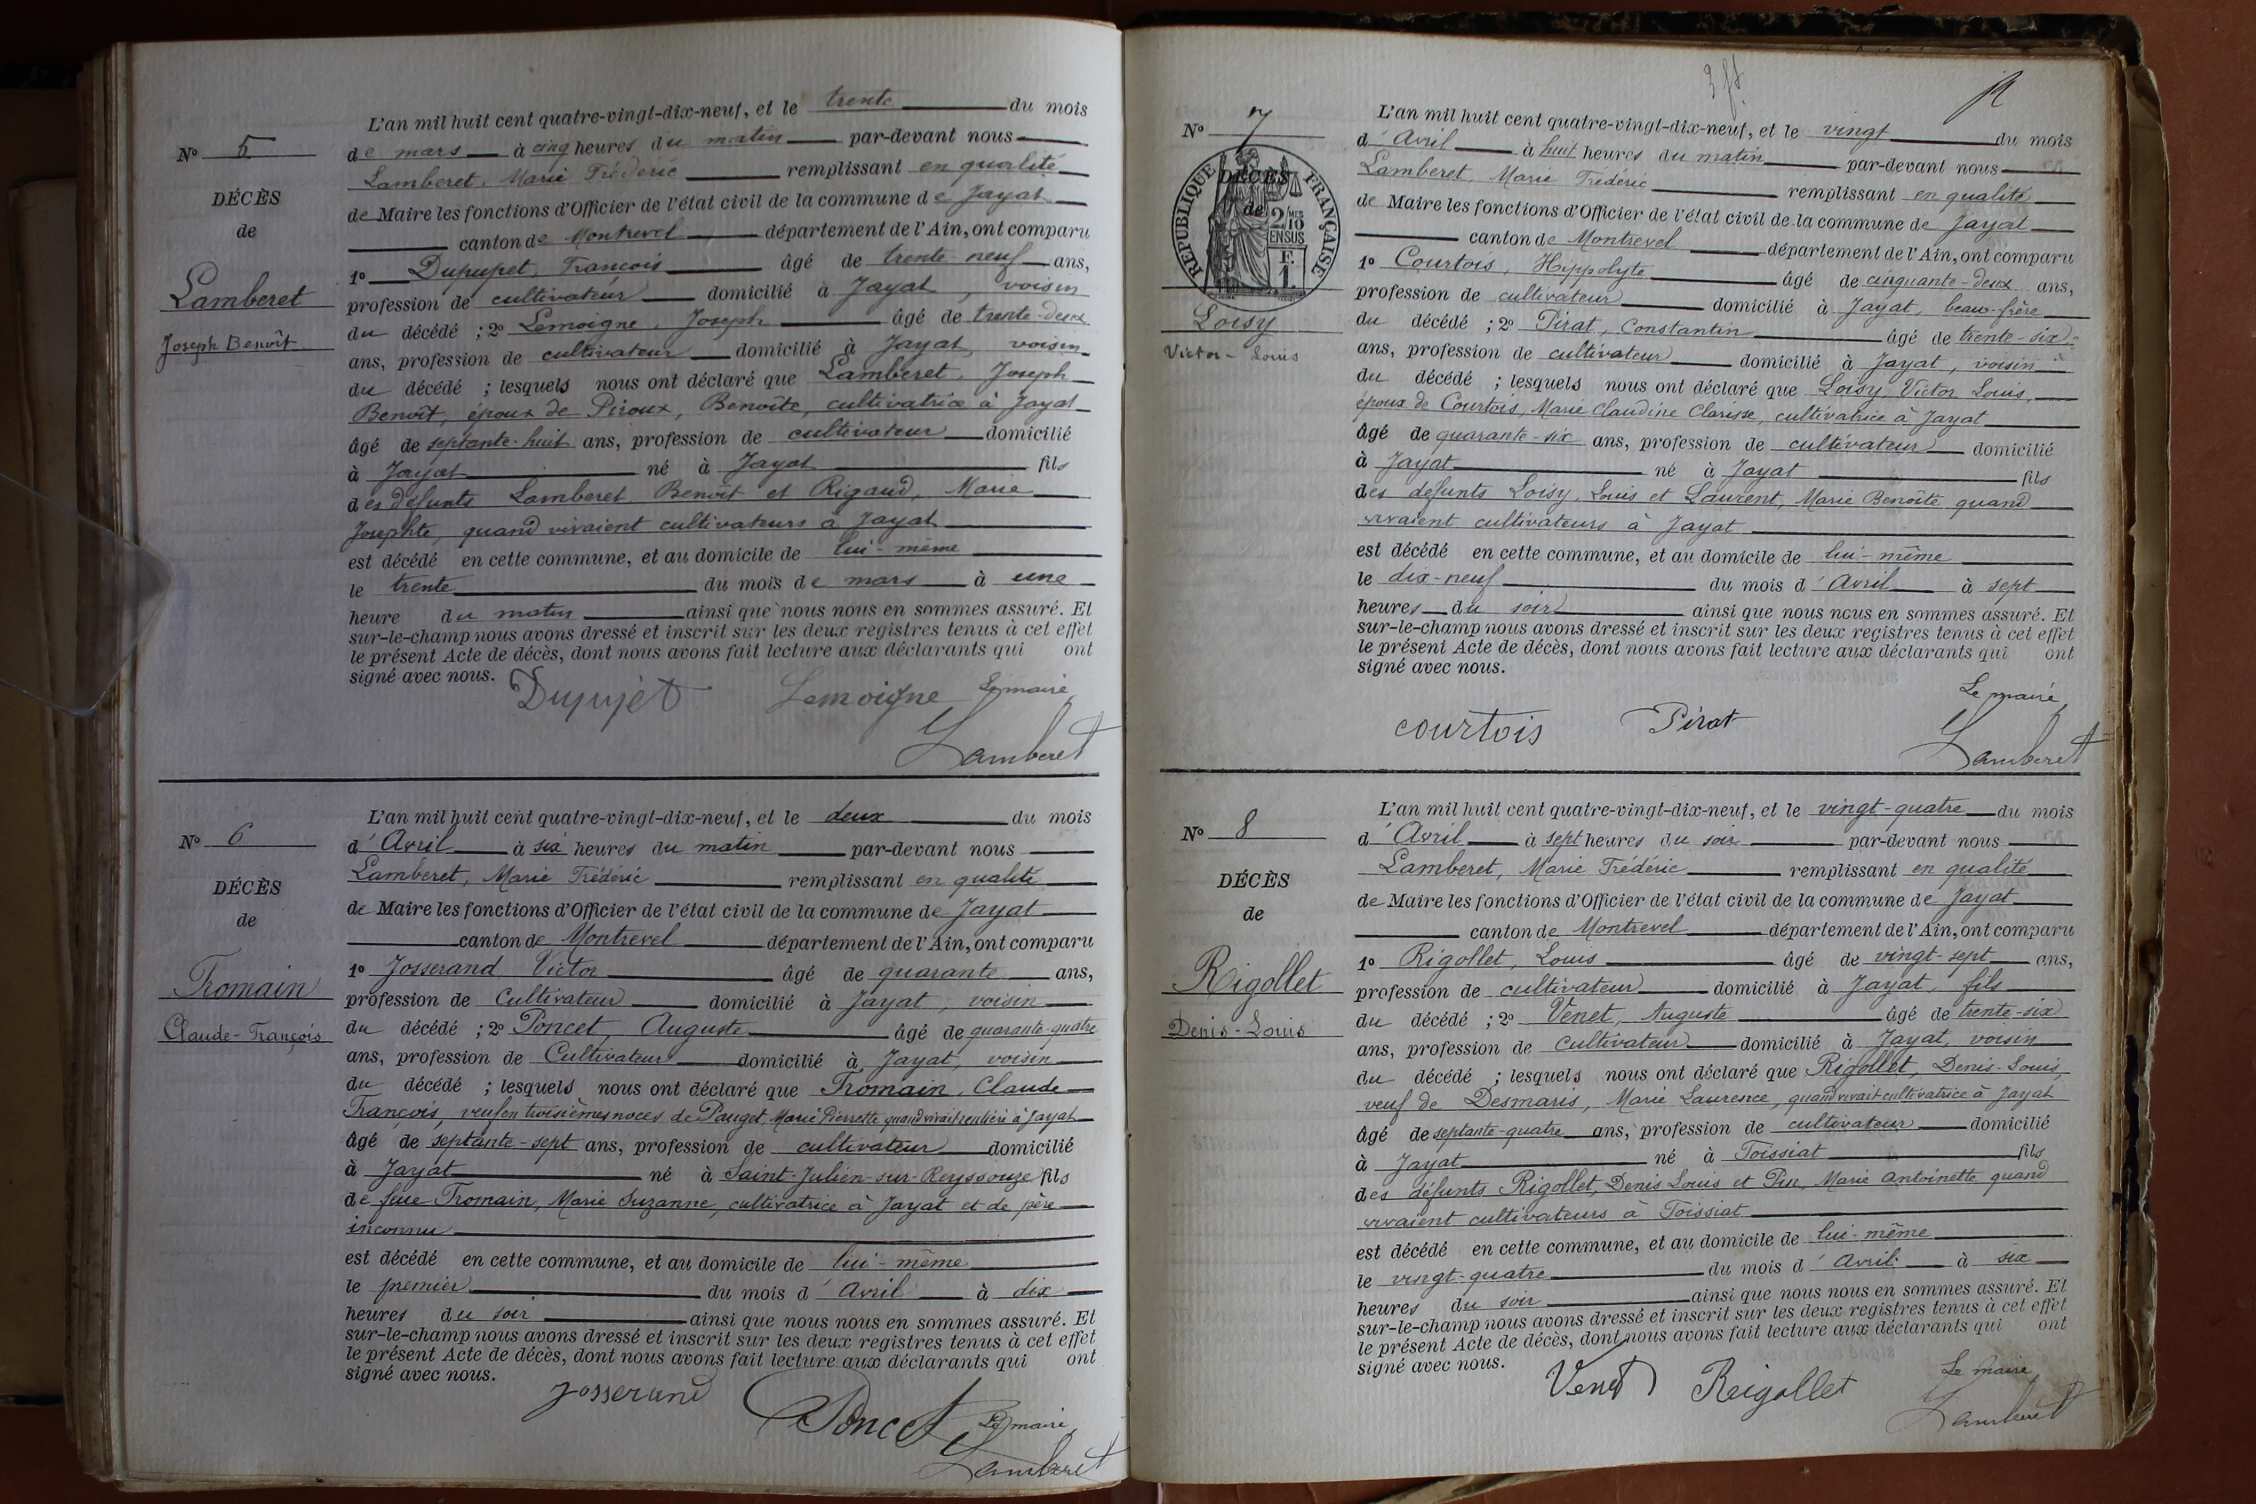 L'an mil huit cent quatre-vingt-dix-neuf, et le trente du mois
N° 5
de mars à cinq heures du matin par-devant nous
Lamberet, Marie Frédéric remplissant en qualité
DÉCÈS
de Maire les fonctions d'Officier de l'état civil de la commune de Jayat
de
canton de Montrevel département de l'Ain, ont comparu
1° Dupupet, François âgé de trente-neuf ans,
Lamberet
profession de cultivateur domicilié à Jayat, voisin
du décédé ; 2° Lemoigne, Joseph âgé de trente-deux
Joseph Benoît
ans, profession de cultivateur domicilié à Jayat, voisin
du décédé ; lesquels nous ont déclaré que Lamberet, Joseph
Benoît, époux de Piroux, Benoîte, cultivatrice à Jayat
âgé de septante-huit ans, profession de cultivateur domicilié
à Jayat né à Jayat fils
des défunts Lamberet, Benoît et Rigaud, Marie
Josephte, quand vivaient cultivateurs à Jayat
est décédé en cette commune, et au domicile de lui-même
le trente du mois de mars à une
heure du matin ainsi que nous nous en sommes assuré. Et
sur-le-champ nous avons dressé et inscrit sur les deux registres tenus à cet effet
le présent Acte de décès, dont nous avons fait lecture aux déclarants qui ont
signé avec nous.
Dupujet Lemoigne Le maire
Lamberet
L'an mil huit cent quatre-vingt-dix-neuf, et le deux du mois
N° 6
d'Avril à six heures du matin par-devant nous
Lamberet, Marie Frédéric remplissant en qualité
DÉCÈS
de Maire les fonctions d'Officier de l'état civil de la commune de Jayat
de
canton de Montrevel département de l'Ain, ont comparu
1° Josserand Victor âgé de quarante ans,
Fromain
profession de Cultivateur domicilié à Jayat, voisin
du décédé ; 2° Poncet, Auguste âgé de quarante-quatre
Claude-François
ans, profession de Cultivateur domicilié à Jayat, voisin
du décédé ; lesquels nous ont déclaré que Fromain, Claude
François, veuf en troisièmes noces de Pauget, Marie Pierrette quand vivait rentière à Jayat
âgé de septante-sept ans, profession de cultivateur domicilié
à Jayat né à Saint-Julien-sur-Reyssouze fils
de feue Fromain, Marie Suzanne, cultivatrice à Jayat et de père
inconnu
est décédé en cette commune, et au domicile de lui-même
le premier du mois d'Avril à dix
heures du soir ainsi que nous nous en sommes assuré. Et
sur-le-champ nous avons dressé et inscrit sur les deux registres tenus à cet effet
le présent Acte de décès, dont nous avons fait lecture aux déclarants qui ont
signé avec nous.
Josserand Poncet Le maire
Lamberet
L'an mil huit cent quatre-vingt-dix-neuf, et le vingt du mois
N° 7
d'Avril à huit heures du matin par-devant nous
Lamberet, Marie Frédéric remplissant en qualité
DÉCÈS
de
RÉPUBLIQUE FRANÇAISE
2/10 MES
EN SUS
F. 1.
de Maire les fonctions d'Officier de l'état civil de la commune de Jayat
canton de Montrevel département de l'Ain, ont comparu
1° Courtois, Hippolyte âgé de cinquante-deux ans,
profession de cultivateur domicilié à Jayat, beau-frère
Loisy
du décédé ; 2° Pirat, Constantin âgé de trente-six
Victor-Louis
ans, profession de cultivateur domicilié à Jayat, voisin
du décédé ; lesquels nous ont déclaré que Loisy, Victor Louis,
époux de Courtois, Marie Claudine Clarisse, cultivatrice à Jayat
âgé de quarante-six ans, profession de cultivateur domicilié
à Jayat né à Jayat fils
des défunts Loisy, Louis et Laurent, Marie Benoîte quand
vivaient cultivateurs à Jayat
est décédé en cette commune, et au domicile de lui-même
le dix-neuf du mois d'Avril à sept
heures du soir ainsi que nous nous en sommes assuré. Et
sur-le-champ nous avons dressé et inscrit sur les deux registres tenus à cet effet
le présent Acte de décès, dont nous avons fait lecture aux déclarants qui ont
signé avec nous.
Le maire
courtois Pirat
Lamberet
L'an mil huit cent quatre-vingt-dix-neuf, et le vingt-quatre du mois
N° 8
d'Avril à sept heures du soir par-devant nous
Lamberet, Marie Frédéric remplissant en qualité
DÉCÈS
de Maire les fonctions d'Officier de l'état civil de la commune de Jayat
de
canton de Montrevel département de l'Ain, ont comparu
1° Rigollet, Louis âgé de vingt-sept ans,
Rigollet
profession de cultivateur domicilié à Jayat, fils
du décédé ; 2° Venet, Auguste âgé de trente-six
Denis-Louis
ans, profession de cultivateur domicilié à Jayat, voisin
du décédé ; lesquels nous ont déclaré que Rigollet, Denis-Louis,
veuf de Desmaris, Marie Laurence, quand vivait cultivatrice à Jayat
âgé de septante-quatre ans, profession de cultivateur domicilié
à Jayat né à Foissiat fils
des défunts Rigollet, Denis Louis et Pin, Marie Antoinette quand
vivaient cultivateurs à Foissiat
est décédé en cette commune, et au domicile de lui-même
le vingt-quatre du mois d'Avril à six
heures du soir ainsi que nous nous en sommes assuré. Et
sur-le-champ nous avons dressé et inscrit sur les deux registres tenus à cet effet
le présent Acte de décès, dont nous avons fait lecture aux déclarants qui ont
signé avec nous.
Le maire
Venet Reigollet
Lamberet